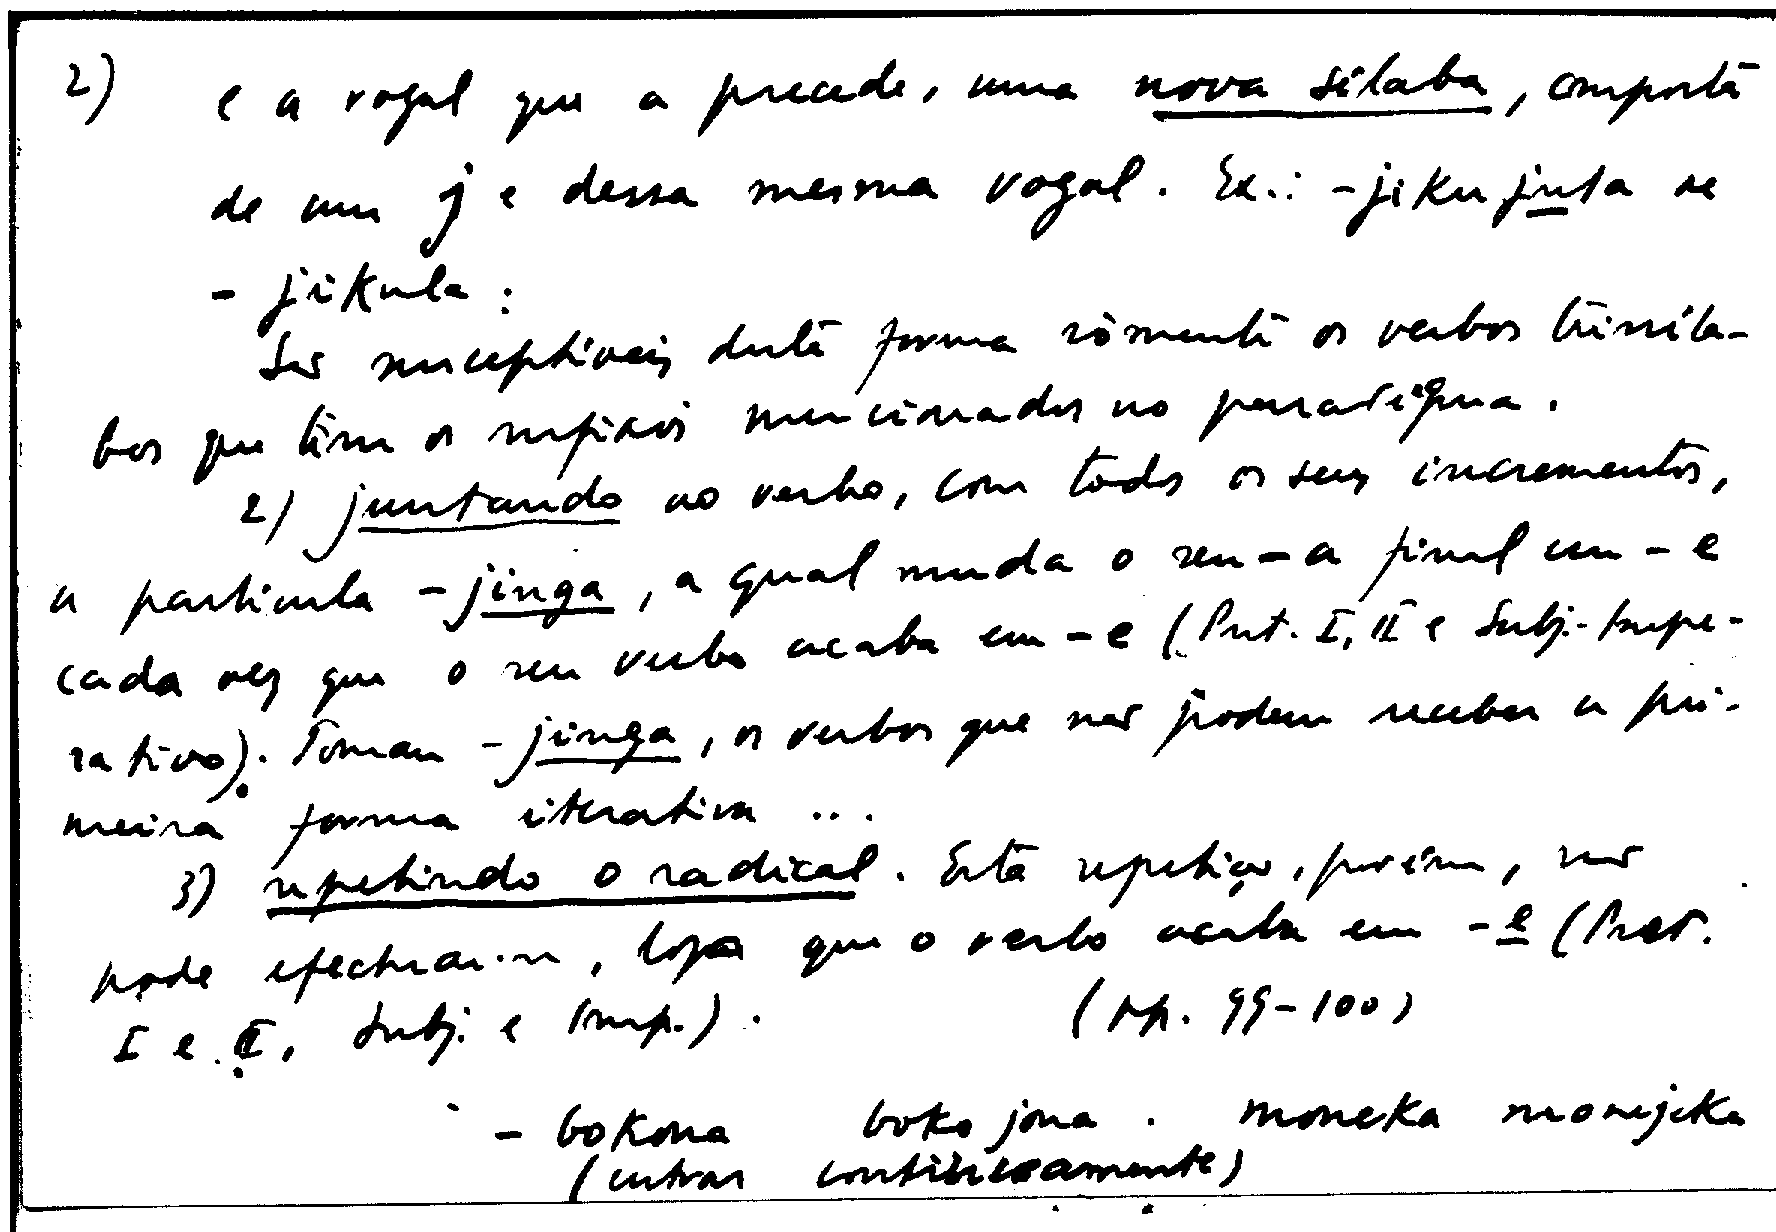 2) e a vogal que a precede, uma nova sílaba, composta
de um j e dessa mesma vogal. Ex.: -jikujuta de
- jikula.
São susceptíveis desta forma sòmente os verbos trissíla-
bos que têm os sufixos mencionados no paradigma.
2) juntando ao verbo, com todos os seus incrementos,
a partícula -jinga, a qual muda o seu -a final em -e
cada vez que o seu verbo acaba em -e (Pret. I, II e Subj.-Impe-
rativo). Tomam -jinga, os verbos que não podem receber a pri-
meira forma iterativa ...
3) repetindo o radical. Esta repetição, porém, não
pode efectuar-se, logo que o verbo acaba em -e (Pret.
I e II, Subj. e Imp.). (pp. 99-100)
- bokona bokojona. moneka monejeka
(entrar continuamente)